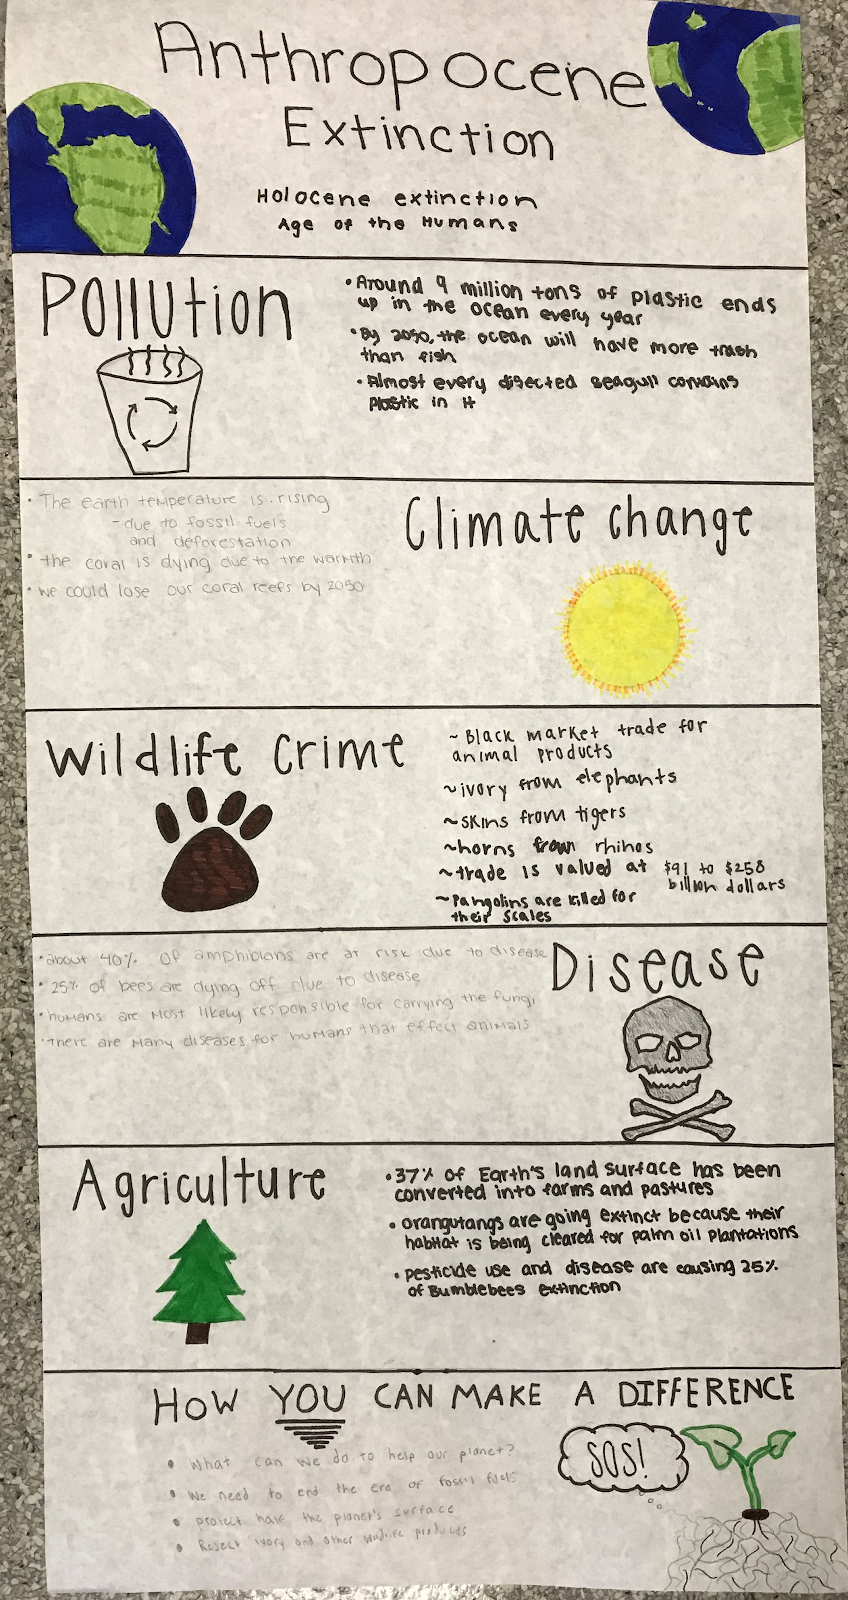 Anthropocene
Extinction
Holocene extinction
Age of the Humans
Pollution
• Around 9 million tons of plastic ends
up in the ocean every year
• By 2050, the ocean will have more trash
than fish
• Almost every disected seagull contains
plastic in it
Climate change
• The earth temperature is rising
- due to fossil fuels
and deforestation
• the coral is dying due to the warmth
• we could lose our coral reefs by 2050
Wildlife crime
~ Black market trade for
animal products
~ ivory from elephants
~ skins from tigers
~ horns from rhinos
~ trade is valued at $91 to $258
billion dollars
~ Pangolins are killed for
their scales
Disease
• about 40% of amphibians are at risk due to disease
• 25% of bees are dying off due to disease
• humans are most likely responsible for carrying the fungi
• there are many diseases for humans that effect animals
Agriculture
• 37% of Earth's land surface has been
converted into farms and pastures
• orangutangs are going extinct because their
habitat is being cleared for palm oil plantations
• pesticide use and disease are causing 25%
of Bumblebees extinction
HOW YOU CAN MAKE A DIFFERENCE
• What can we do to help our planet?
• we need to end the era of fossil fuels
• protect half the planet's surface
• Reject ivory and other wildlife products
SOS!